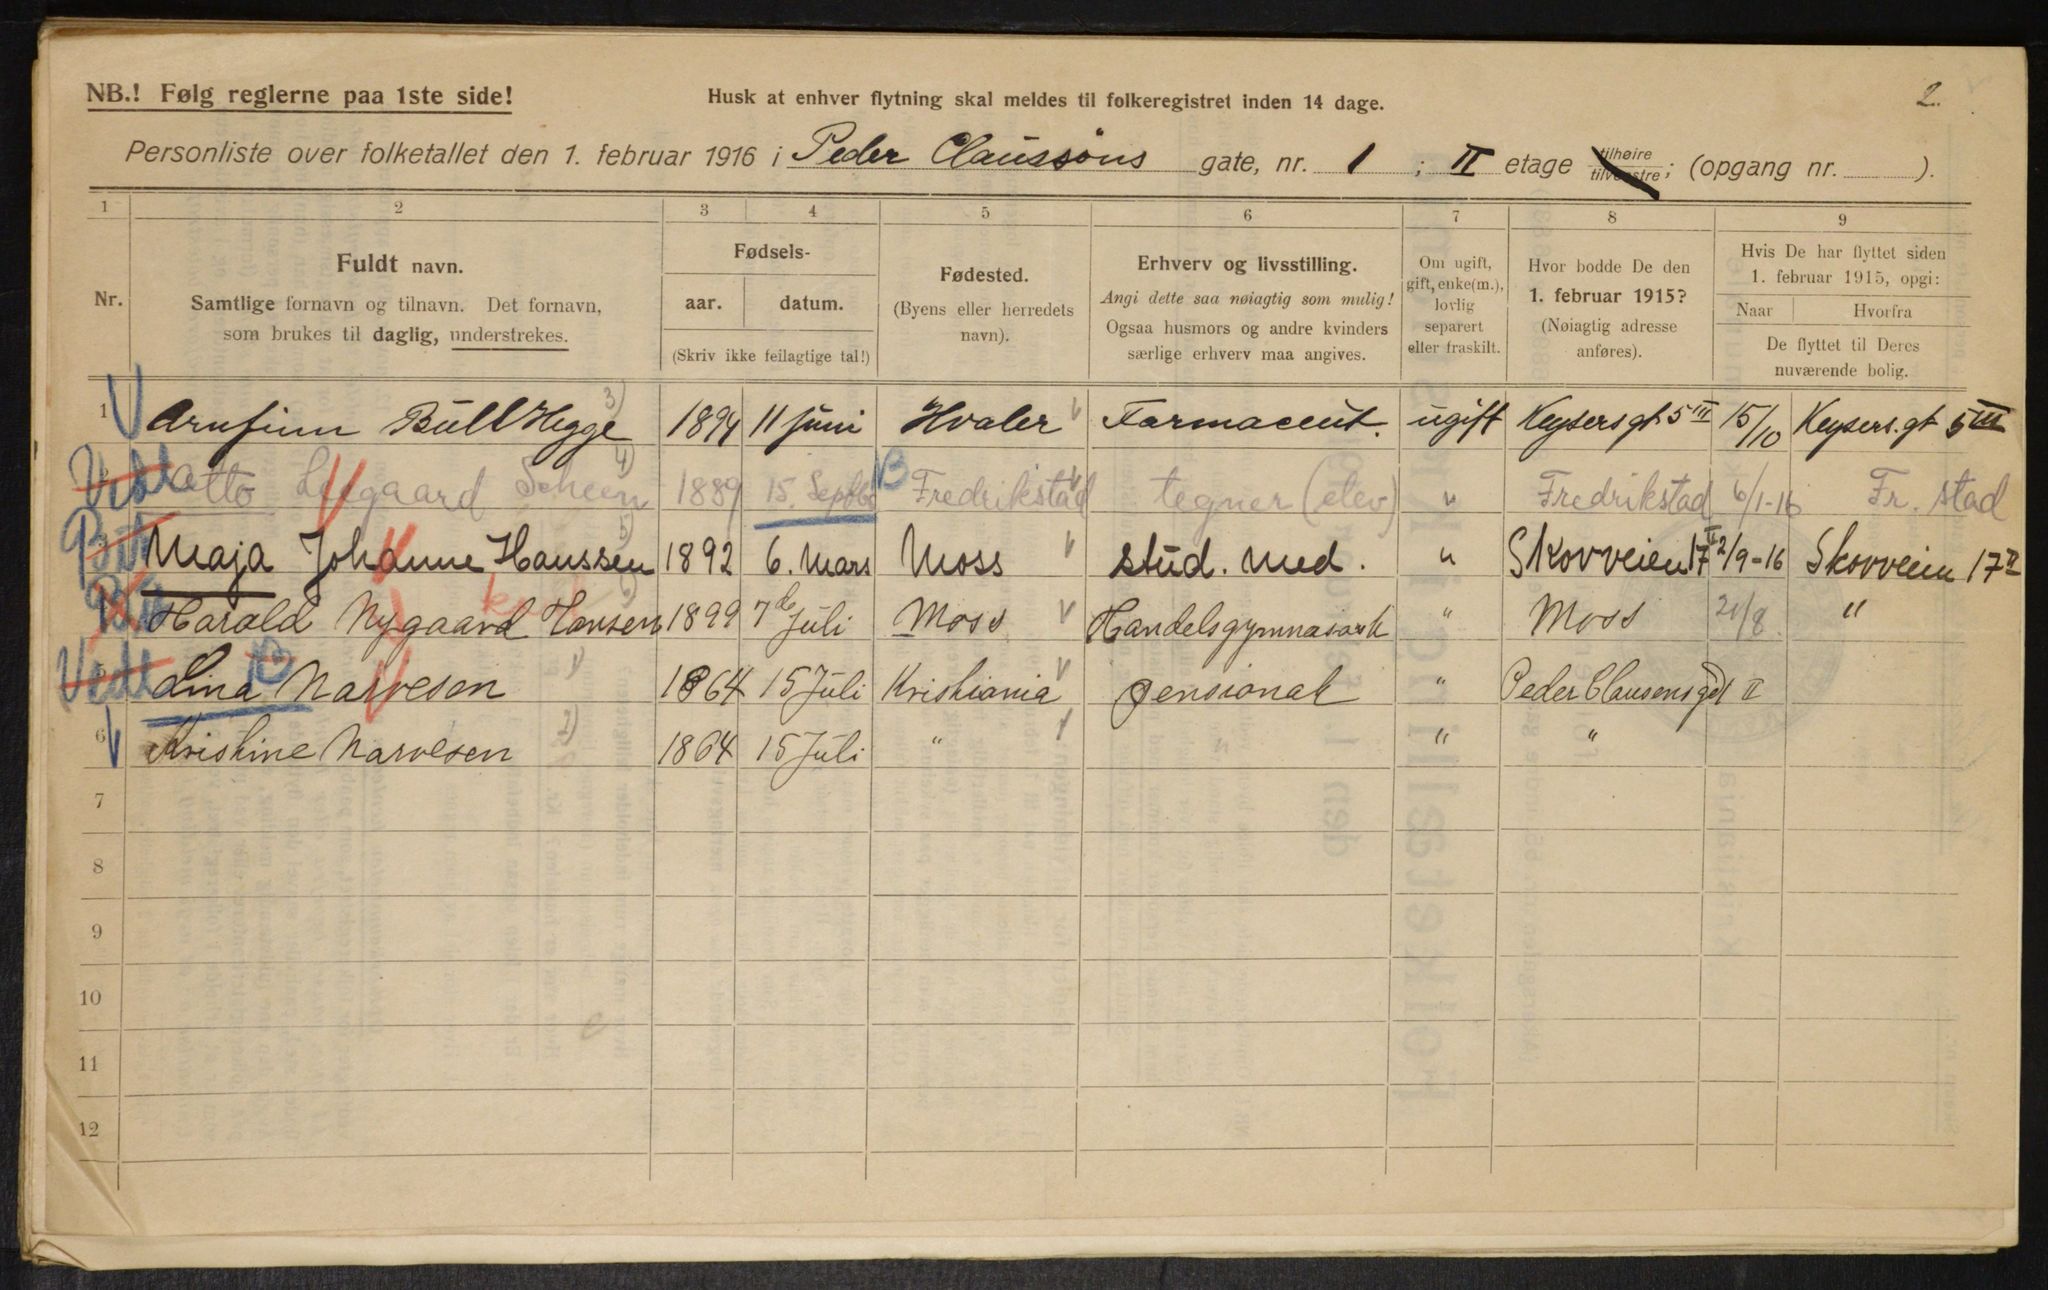 2.
NB.! Følg reglerne paa 1ste side!
Husk at enhver flytning skal meldes til folkeregistret inden 14 dage.
Personliste over folketallet den 1. februar 1916 i Peder Claussøns gate, nr. 1 ; II etage tilhøire tilvenstre; (opgang nr. ).
1 2 3 4 5 6 7 8 9
Nr.
Fuldt navn.
Samtlige fornavn og tilnavn. Det fornavn,
som brukes til daglig, understrekes.
Fødsels-
aar. datum.
(Skriv ikke feilagtige tal!)
Fødested.
(Byens eller herredets
navn).
Erhverv og livsstilling.
Angi dette saa nøiagtig som mulig!
Ogsaa husmors og andre kvinders
særlige erhverv maa angives.
Om ugift,
gift, enke(m.),
lovlig
separert
eller fraskilt.
Hvor bodde De den
1. februar 1915?
(Nøiagtig adresse
anføres).
Hvis De har flyttet siden
1. februar 1915, opgi:
Naar Hvorfra
De flyttet til Deres
nuværende bolig.
1 Arnfinn Bull Hegge 3) 1894 11 juni Hvaler Farmaceut. ugift Keysersgt. 5 III 15/10 Keysers. gt 5 III
Otto Scheen 4) 1889 15. Septbr B Fredrikstad tegner (elev) " Fredrikstad 6/1-16 Fr. stad
Maja Johanne Hanssen 5) 1892 6. Mars Moss stud. med. " Skovveien 17 II 2/9-16 Skovveien 17 II
Harald Nygaard Hansen 1899 7de Juli Moss Handelsgymnasark " Moss 21/8 "
Vedt Lina Narvesen 1) 1864 15 Juli Kristiania pensionat " Peder Clausens gt II
6 Kristine Narvesen 2) 1864 15 Juli " " "
7
8
9
10
11
12